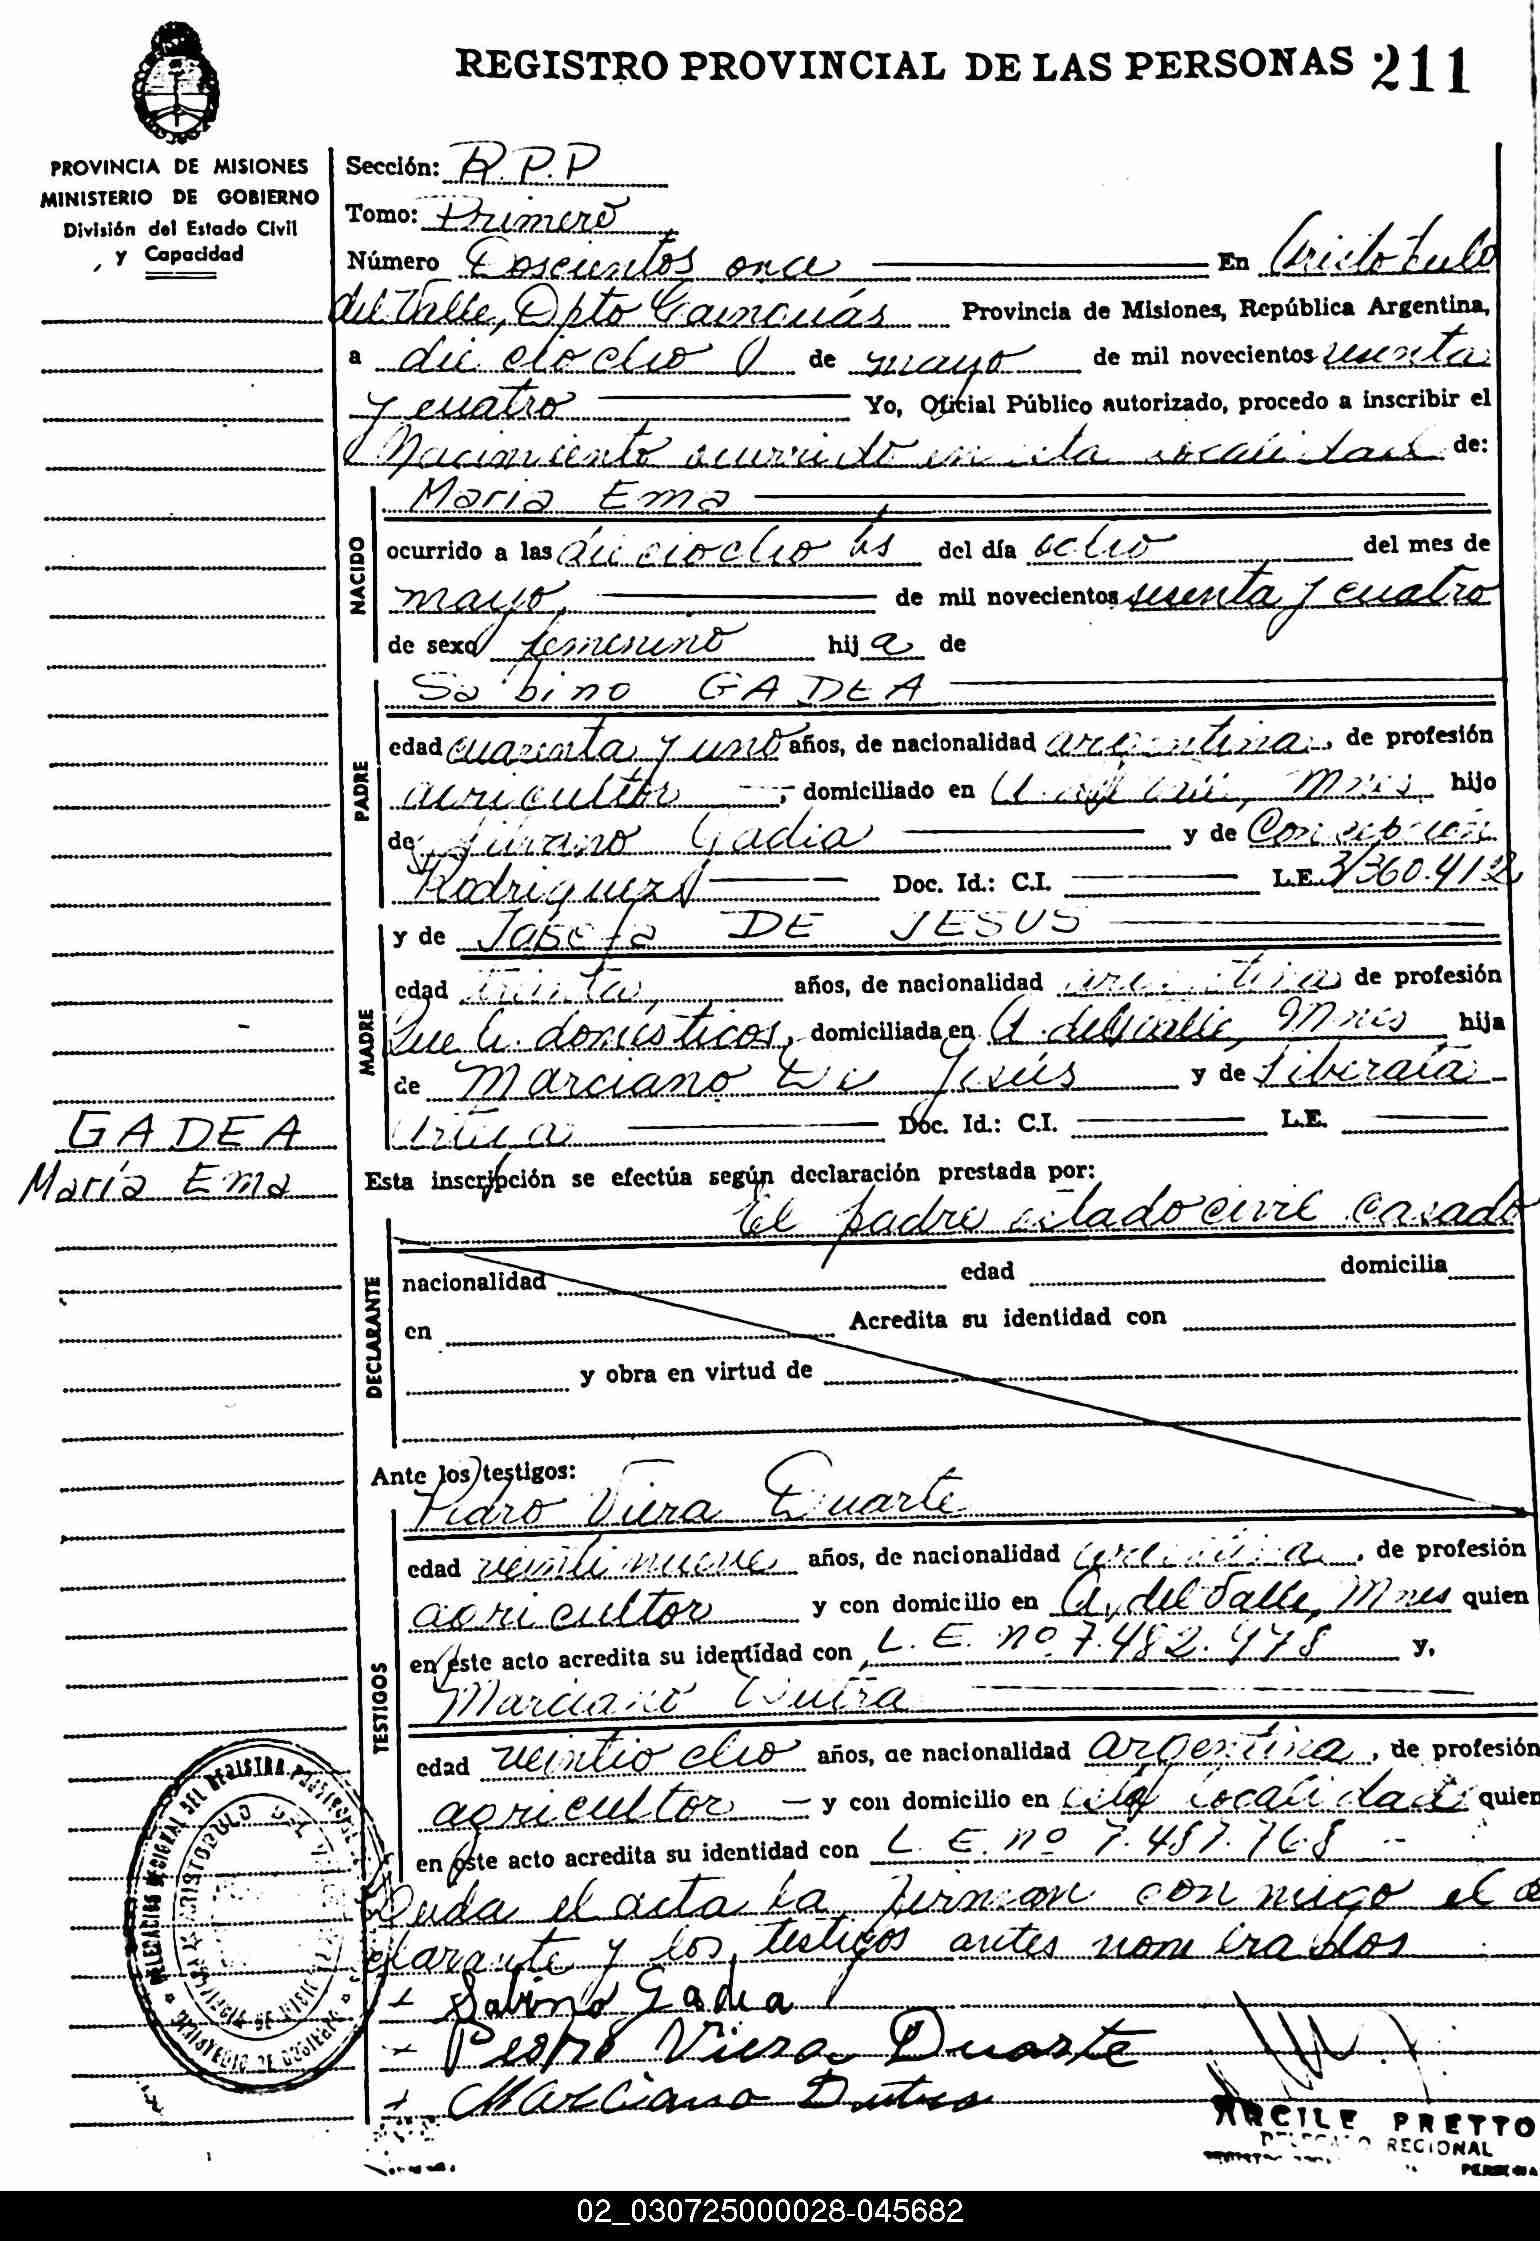 REGISTRO PROVINCIAL DE LAS PERSONAS 211
PROVINCIA DE MISIONES
MINISTERIO DE GOBIERNO
División del Estado Civil
y Capacidad
Sección: R.P.P
Tomo: Primero
Número Doscientos once En Aristóbulo
del Valle, Dpto Cainguás Provincia de Misiones, República Argentina,
a dieciocho de mayo de mil novecientos sesenta
y cuatro Yo, Oficial Público autorizado, procedo a inscribir el
Nacimiento ocurrido en esta localidad de:
NACIDO
Maria Ema
ocurrido a las dieciocho hs del día ocho del mes de
mayo, de mil novecientos sesenta y cuatro
de sexo femenino hija de
PADRE
Sabino GADEA
edad cuarenta y uno años, de nacionalidad argentina, de profesión
agricultor, domiciliado en A. del Valle, Mnes hijo
de Silvano Gadea y de Concepción
Rodriguez Doc. Id.: C.I. L.E. 3/360.412
MADRE
y de Josefa DE JESUS
edad treinta, años, de nacionalidad argentina de profesión
Que h. domésticos, domiciliada en A. del Valle, Mnes hija
de Marciano De Jesús y de Liberata
Doc. Id.: C.I. L.E.
GADEA
María Ema
Esta inscripción se efectúa según declaración prestada por:
El padre estado civil casado
DECLARANTE
nacionalidad edad domicilia
en Acredita su identidad con
y obra en virtud de
Ante los testigos:
TESTIGOS
Pedro Viera Duarte
edad veintinueve años, de nacionalidad argentina, de profesión
agricultor y con domicilio en A. del Valle, Mnes quien
en este acto acredita su identidad con L. E. nº 7.482.978 y,
Marciano Dutra
edad veintiocho años, de nacionalidad argentina, de profesión
agricultor y con domicilio en esta localidad quien
en este acto acredita su identidad con L. E. nº 7.487.768
Leida el acta la firman conmigo el de
clarante y los testigos antes nombrados
Sabino Gadea
Pedro Viera Duarte
Marciano Dutra
DELEGACION REGIONAL DEL REGISTRO
ARISTOBULO DEL VALLE
PROVINCIA DE MISIONES
MINISTERIO DE GOBIERNO
ARCILE PRETTO
DELEGADO REGIONAL
02_030725000028-045682